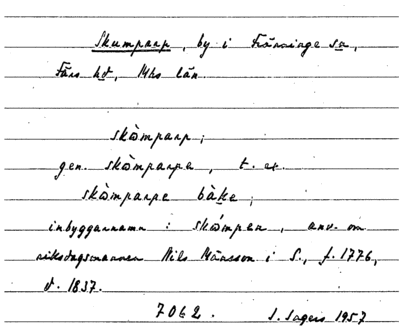 Skumparp, by i Tranninge sn,
Färs hd, Mhs län
skòmparp;
gen. skòmparpa, t. ex.
skòmparpa bàke;
inbyggarnamn: skómpen, anv. om
riksdagsmannen Nils Månsson i S., f. 1776,
d. 1837.
7062. S. Ingers 1957